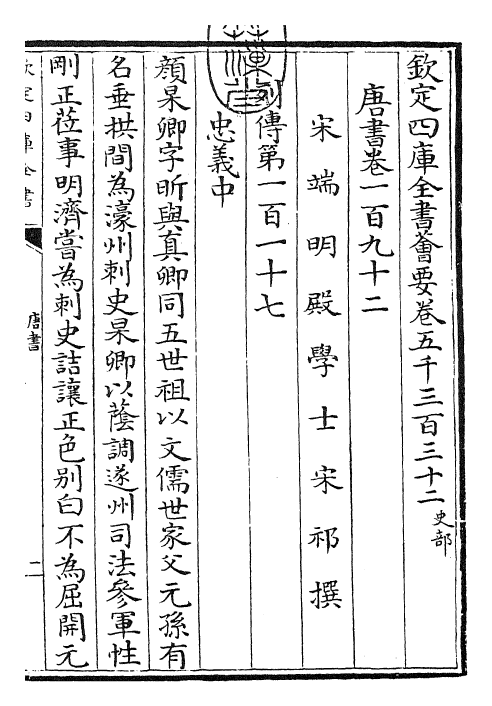 欽定四庫全書薈要卷五千三百三十二史部
唐書卷一百九十二
宋端明殿學士宋祁撰
列傳第一百一十七
忠義中
顔杲卿字昕與真卿同五世祖以文儒世家父元孫有
名垂拱間為濠州刺史杲卿以蔭調遂州司法參軍性
剛正莅事明濟嘗為刺史詰讓正色别白不為屈開元
欽定四庫全書
唐書